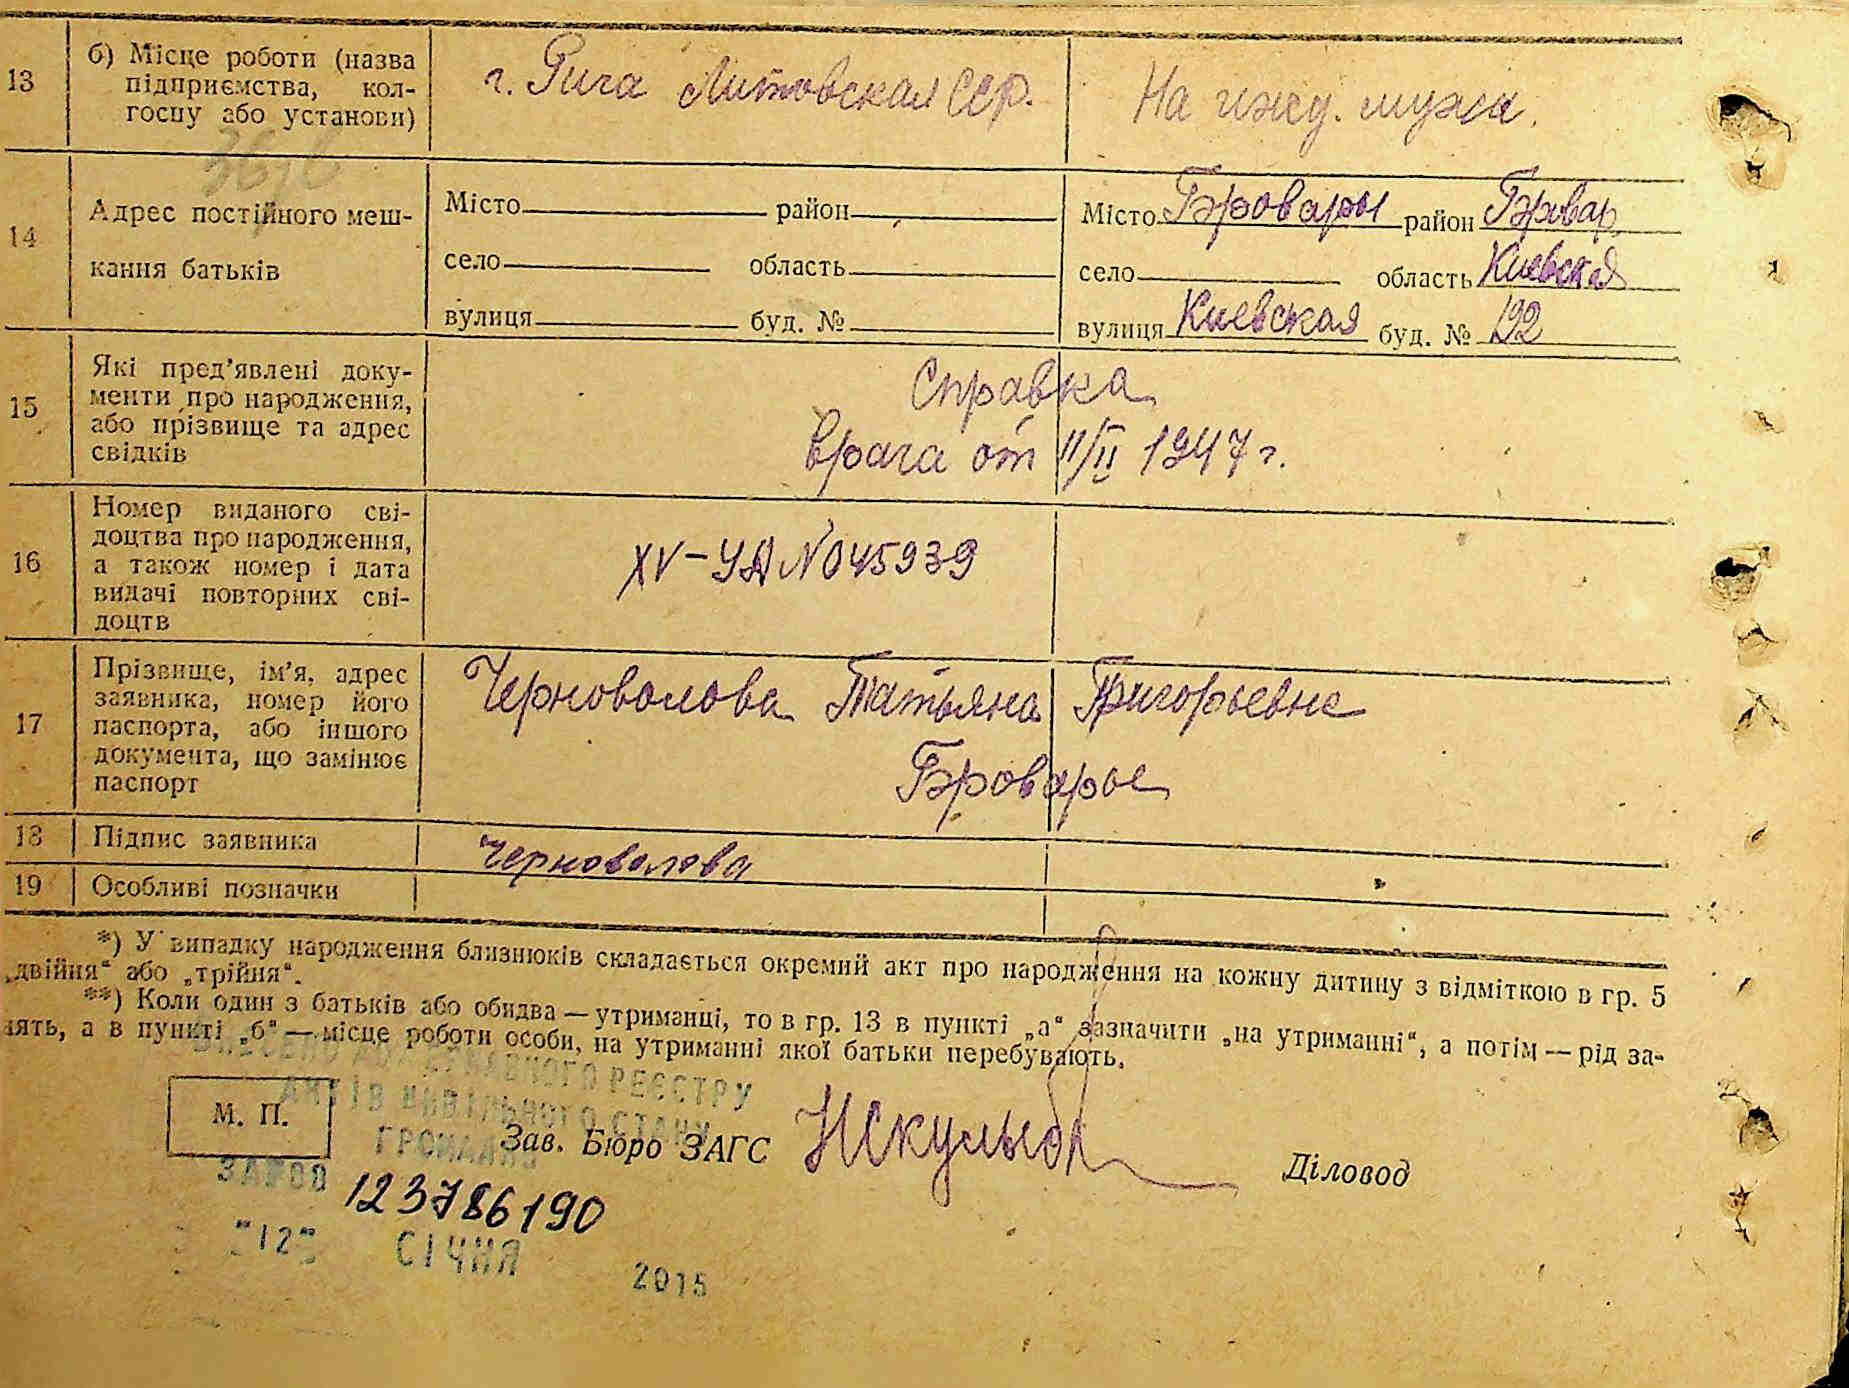 13
б) Місце роботи (назва
підприємства, кол-
госпу або установи)
г. Рига Литовская ССР.
На ижд. мужа.
14
Адрес постійного меш-
кання батьків
Місто район
село область
вулиця буд. №
Місто Бровары район Бровар.
село область Киевская
вулиця Киевская буд. № 192
15
Які пред’явлені доку-
менти про народження,
або прізвище та адрес
свідків
Справка
врача от 11/II 1947 г.
16
Номер виданого сві-
доцтва про народження,
а також номер і дата
видачі повторних сві-
доцтв
XV-УА N045939
17
Прізвище, ім’я, адрес
заявника, номер його
паспорта, або іншого
документа, що замінює
паспорт
Черноволова Татьяна Григорьевна
Бровары
18 Підпис заявника
Черноволова
19 Особливі позначки
*) У випадку народження близнюків складається окремий акт про народження на кожну дитину з відміткою в гр. 5
„двійня“ або „трійня“.
**) Коли один з батьків або обидва — утриманці, то в гр. 13 в пункті „а“ зазначити „на утриманні“, а потім — рід за-
нять, а в пункті „б“ — місце роботи особи, на утриманні якої батьки перебувають.
ДЕРЖАВНОГО РЕЄСТРУ
АКТІВ ЦИВІЛЬНОГО СТАНУ
ГРОМАДЯН
М. П.
Зав. Бюро ЗАГС
Діловод
ЗА №00 123786190
"12" СІЧНЯ 2015